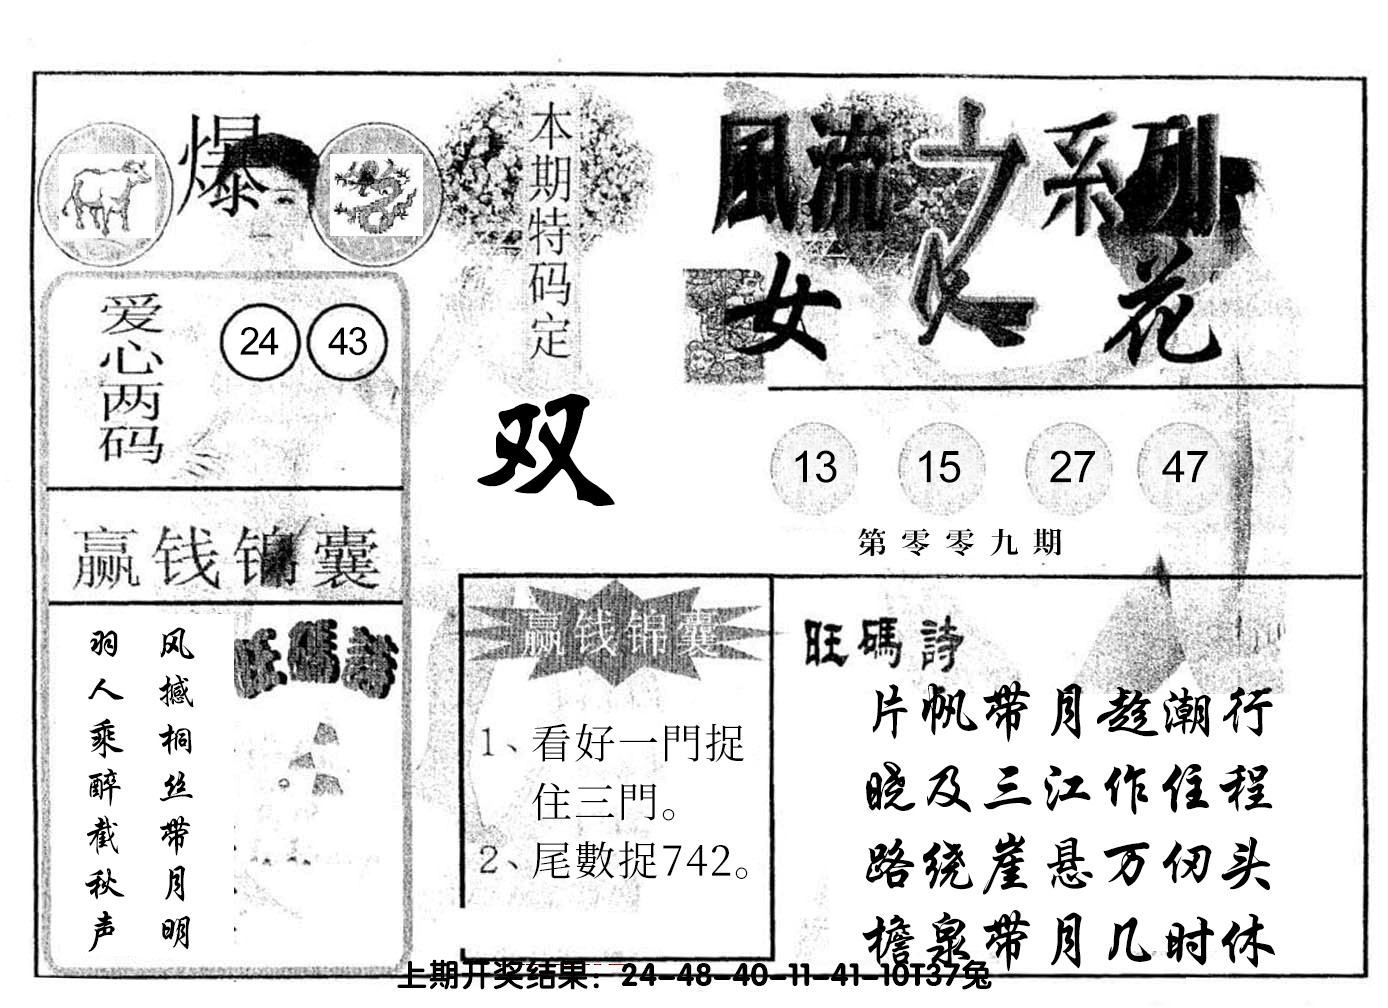 爆
爱心两码
24 43
赢钱锦囊
风撼桐丝带月明
羽人乘醉截秋声
旺碼詩
本期特码定
双
風流之系列
女人花
13 15 27 47
第零零九期
赢钱锦囊
1、看好一門捉
住三門。
2、尾數捉742。
旺碼詩
片帆带月趁潮行
晓及三江作住程
路绕崖悬万仞头
担泉带月几时休
上期开奖结果：24-48-40-11-41-10T37兔